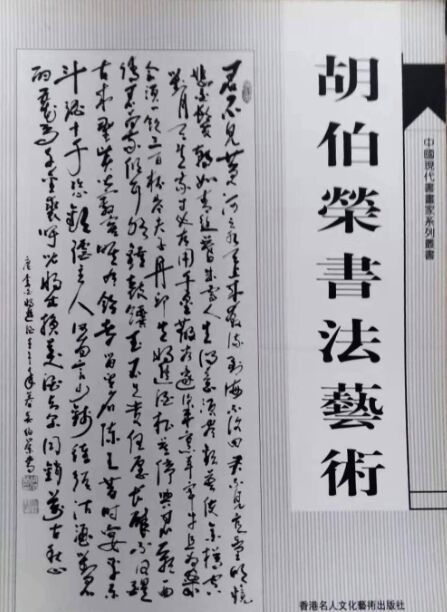 胡伯榮書法藝術
中國現代書畫家系列叢書
君不見黃河之水天上來奔流到海不復回君不見高堂明鏡
悲白髮朝如青絲暮成雪人生得意須盡歡莫使金樽空
對月天生我才必有用千金散盡還復來烹羊宰牛且為樂
會須一飲三百杯岑夫子丹邱生將進酒杯莫停與君歌一曲
請君為我傾耳聽鐘鼓饌玉不足貴但願長醉不復醒
古來聖賢皆寂寞惟有飲者留其名陳王昔時宴平樂
斗酒十千恣歡謔主人何為言少錢徑須沽酒對君
酌五花馬千金裘呼兒將出換美酒與爾同銷萬古愁
唐李白將進酒
香港名人文化藝術出版社